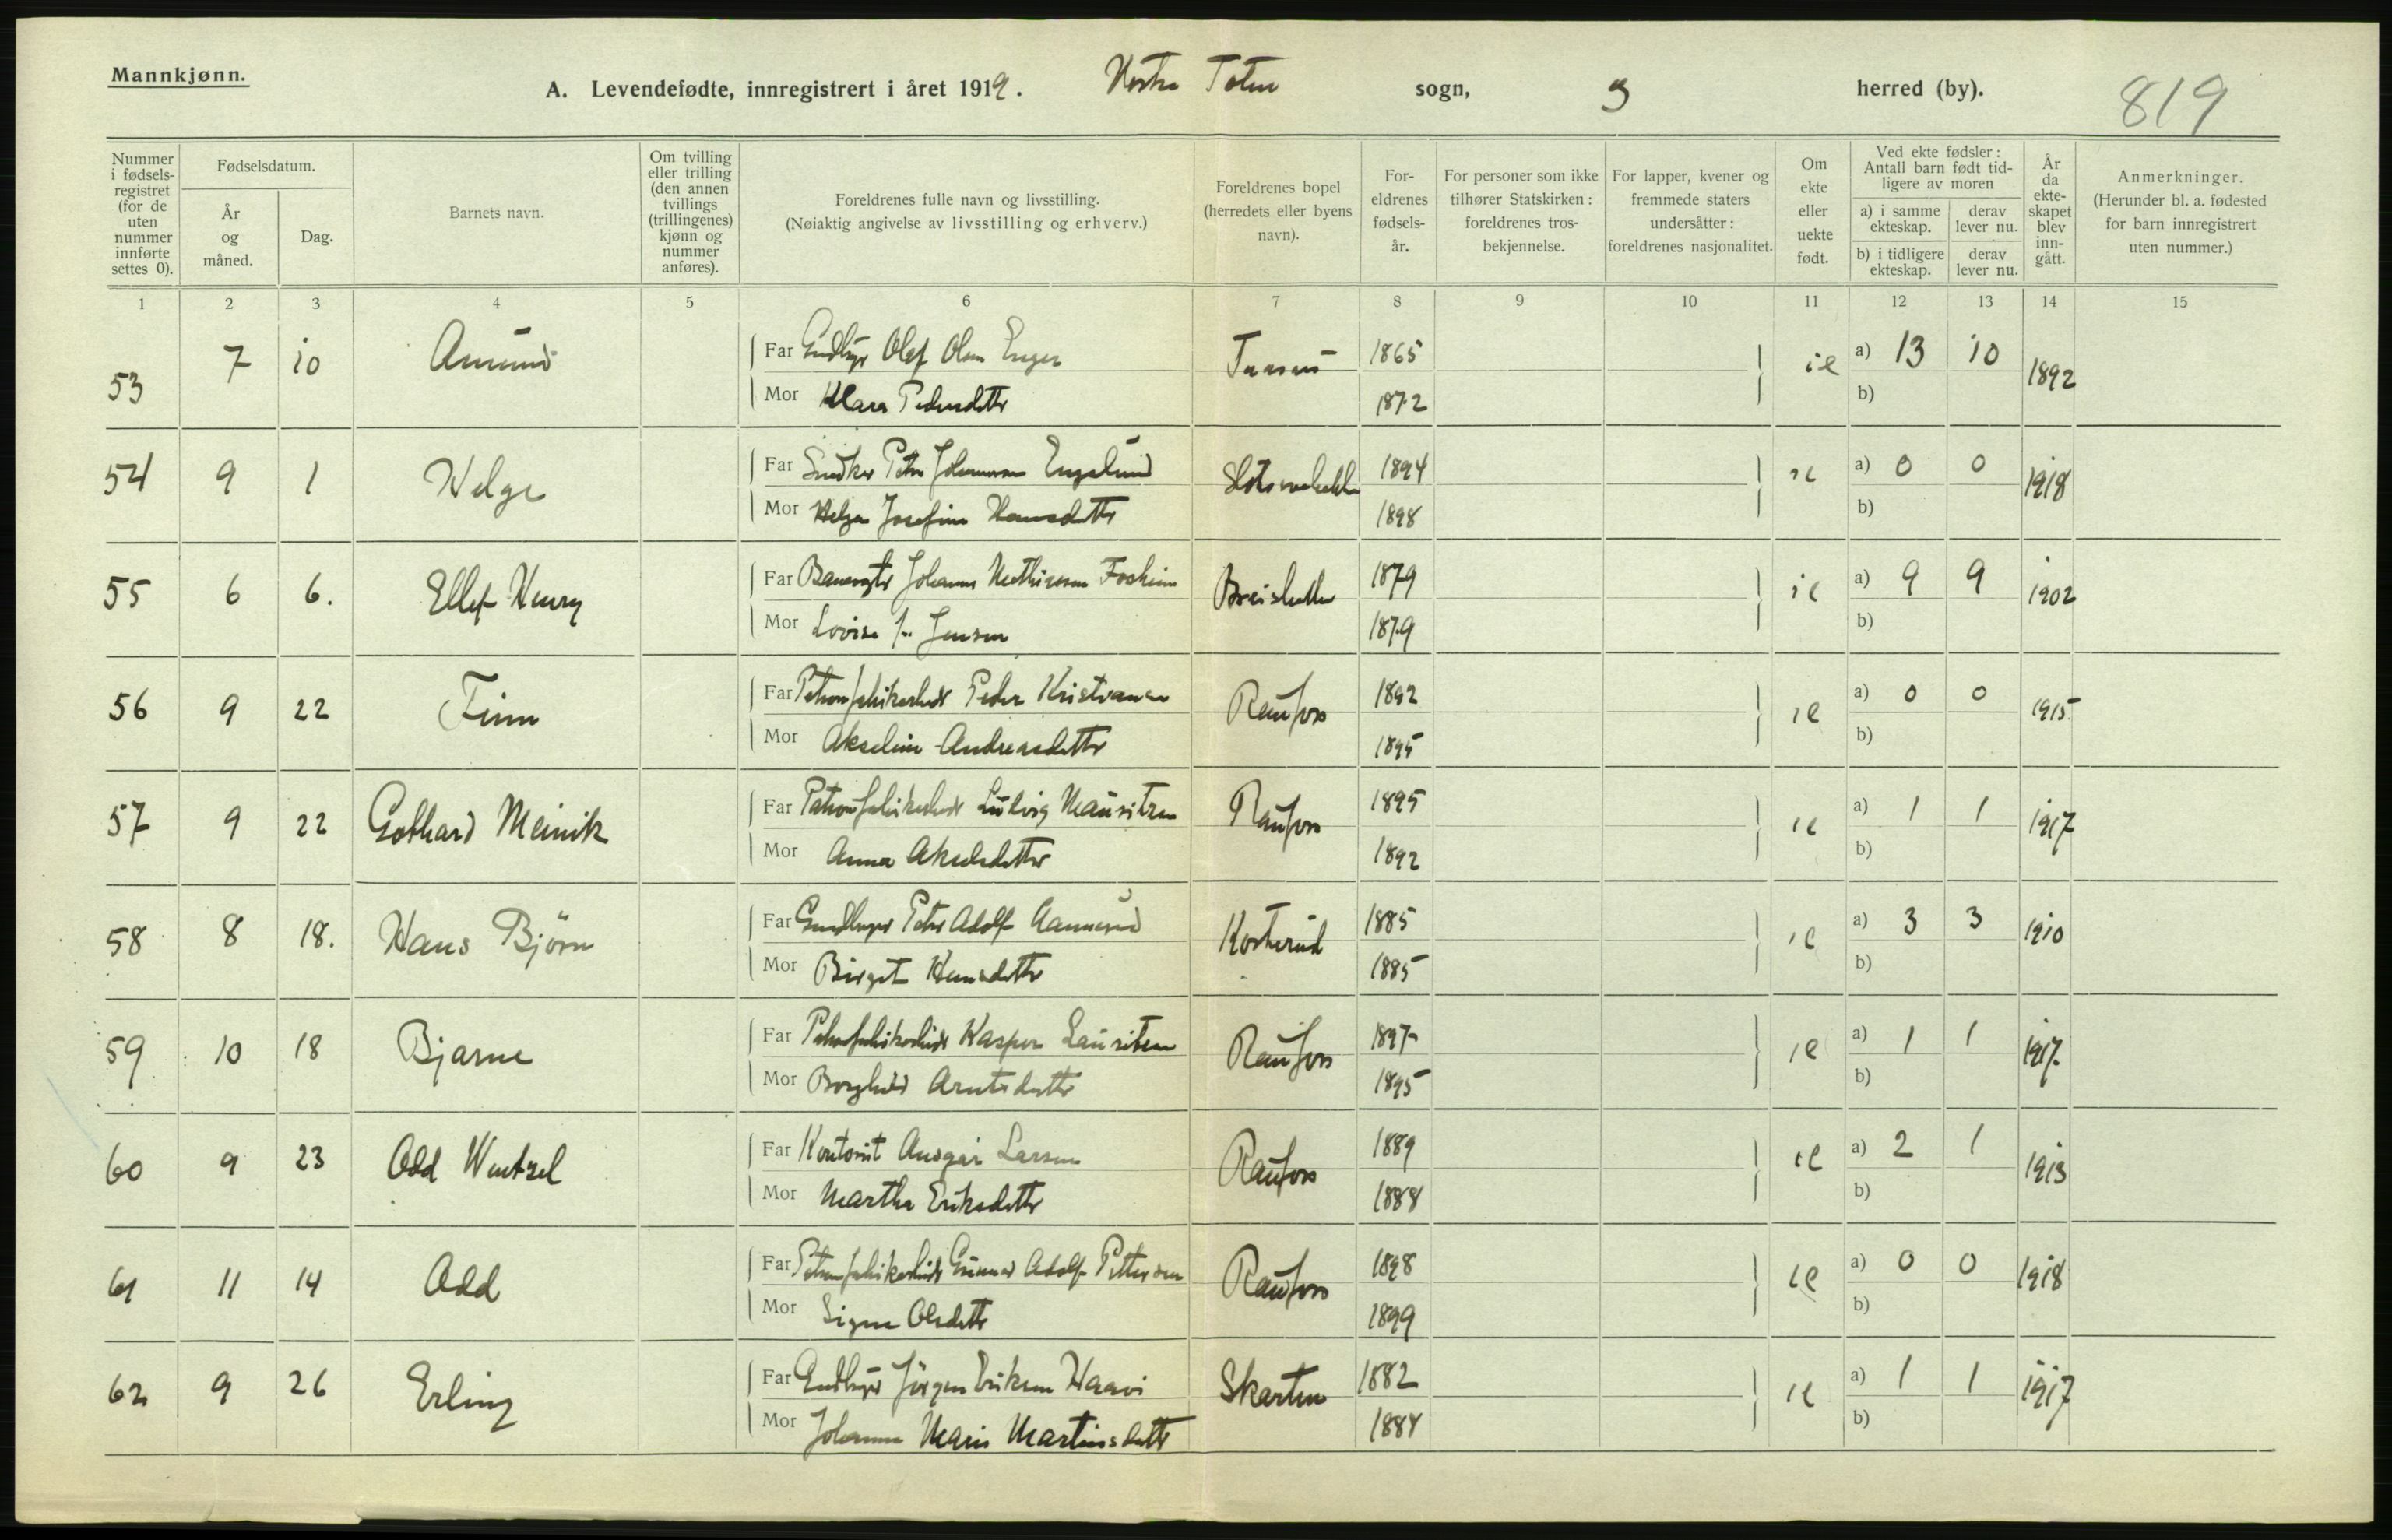 Mannkjønn.
A. Levendefødte, innregistrert i året 1919. Vestre Toten sogn, herred (by). 819
Nummer i fødsels-registret (for de uten nummer innførte settes 0).
Fødselsdatum.
År og måned.
Dag.
Barnets navn.
Om tvilling eller trilling (den annen tvillings (trillingenes) kjønn og nummer anføres).
Foreldrenes fulle navn og livsstilling.
(Nøiaktig angivelse av livsstilling og erhverv.)
Foreldrenes bopel (herredets eller byens navn).
For-eldrenes fødsels-år.
For personer som ikke tilhører Statskirken: foreldrenes tros-bekjennelse.
For lapper, kvener og fremmede staters undersåtter: foreldrenes nasjonalitet.
Om ekte eller uekte født.
Ved ekte fødsler: Antall barn født tid-ligere av moren
a) i samme ekteskap.
derav lever nu.
b) i tidligere ekteskap.
derav lever nu.
År da ekte-skapet blev inn-gått.
Anmerkninger.
(Herunder bl. a. fødested for barn innregistrert uten nummer.)
1 2 3 4 5 6 7 8 9 10 11 12 13 14 15
53 7 10 Amund Far Gudbr Olaf Olsen Enger 1865 a) 13 10 1892
Mor Klara Pedersdatter 1872 b)
54 9 1 Helge Far Snedker Peter Johannessen Englund 1894 a) 0 0 1918
Mor Helga Josefine Hansdatter 1898 b)
55 6 6. Ellef Henry Far Banevogter Johannes Mathiesen Fosheim 1879 a) 9 9 1902
Mor Lovise f. Jensen 1879 b)
56 9 22 Finn Far Patronfabrikarbeid Peder Kristiansen Raufoss 1892 a) 0 0 1915
Mor Akseline Andreasdatter 1895 b)
57 9 22 Gothard Meinik Far Patronfabrikarbeid Ludvig Mauritzen Raufoss 1895 a) 1 1 1917
Mor Anna Akselsdatter 1892 b)
58 8 18. Hans Björn Far Peter Adolf Aamerud Kosterud 1885 a) 3 3 1910
Mor Birgit Hansdatter 1885 b)
59 10 18 Bjarne Far Patronfabrikarbeid Kasper Lauritsen Raufoss 1897 a) 1 1 1917
Mor Borghild Arntsdatter 1895 b)
60 9 23 Odd Wentzel Far Kontorist Ansgar Larsen Raufoss 1889 a) 2 1 1913
Mor Martha Eriksdatter 1888 b)
61 11 14 Odd Far Patronfabrikarbeid Gunnar Adolf Pettersen Raufoss 1898 a) 0 0 1918
Mor Signe Olsdatter 1899 b)
62 9 26 Erling Far Jörgen Eriksen Skarten 1882 a) 1 1 1917
Mor Johanne Marie Martinsdatter 1884 b)